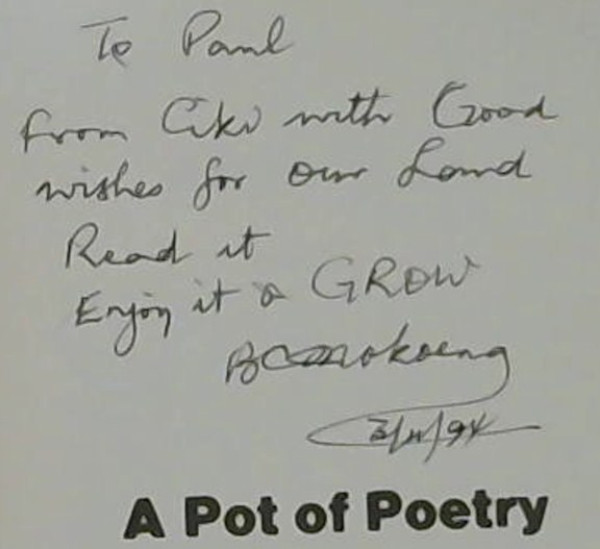 To Paul
from Ciki with Good
wishes for our Land
Read it
Enjoy it & GROW
BC Mokoena
3/11/94
A Pot of Poetry